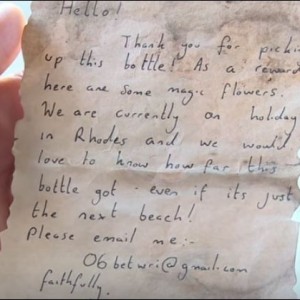 Hello!
Thank you for pickin
up this bottle! As a reward
here are some magic flowers.
We are currently on holiday
in Rhodes and we would
love to know how far this
bottle got - even if its just
the next beach!
Please email me:-
06betwri@gmail.com
faithfully.